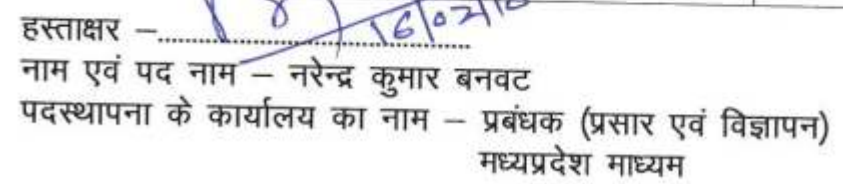 हस्ताक्षर –
16/02/
नाम एवं पद नाम – नरेन्द्र कुमार बनवट
पदस्थापना के कार्यालय का नाम – प्रबंधक (प्रसार एवं विज्ञापन)
मध्यप्रदेश माध्यम